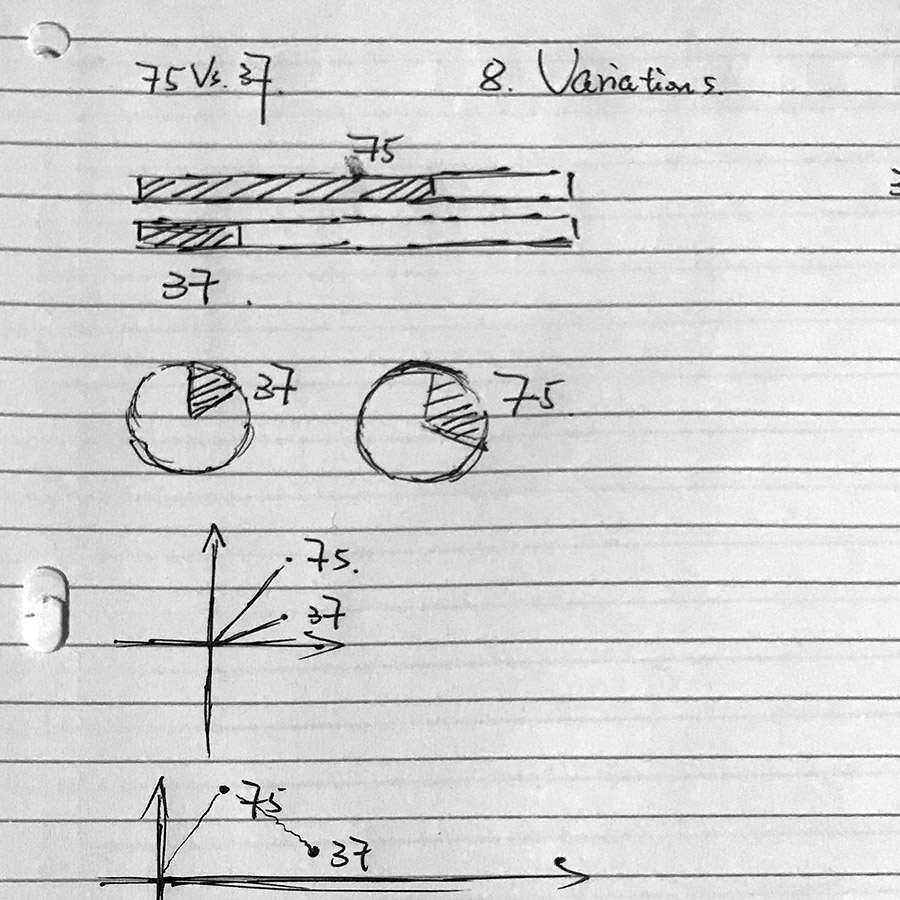 75 Vs. 37.
8. Variations.
75
37.
37
75.
75.
37
75
37